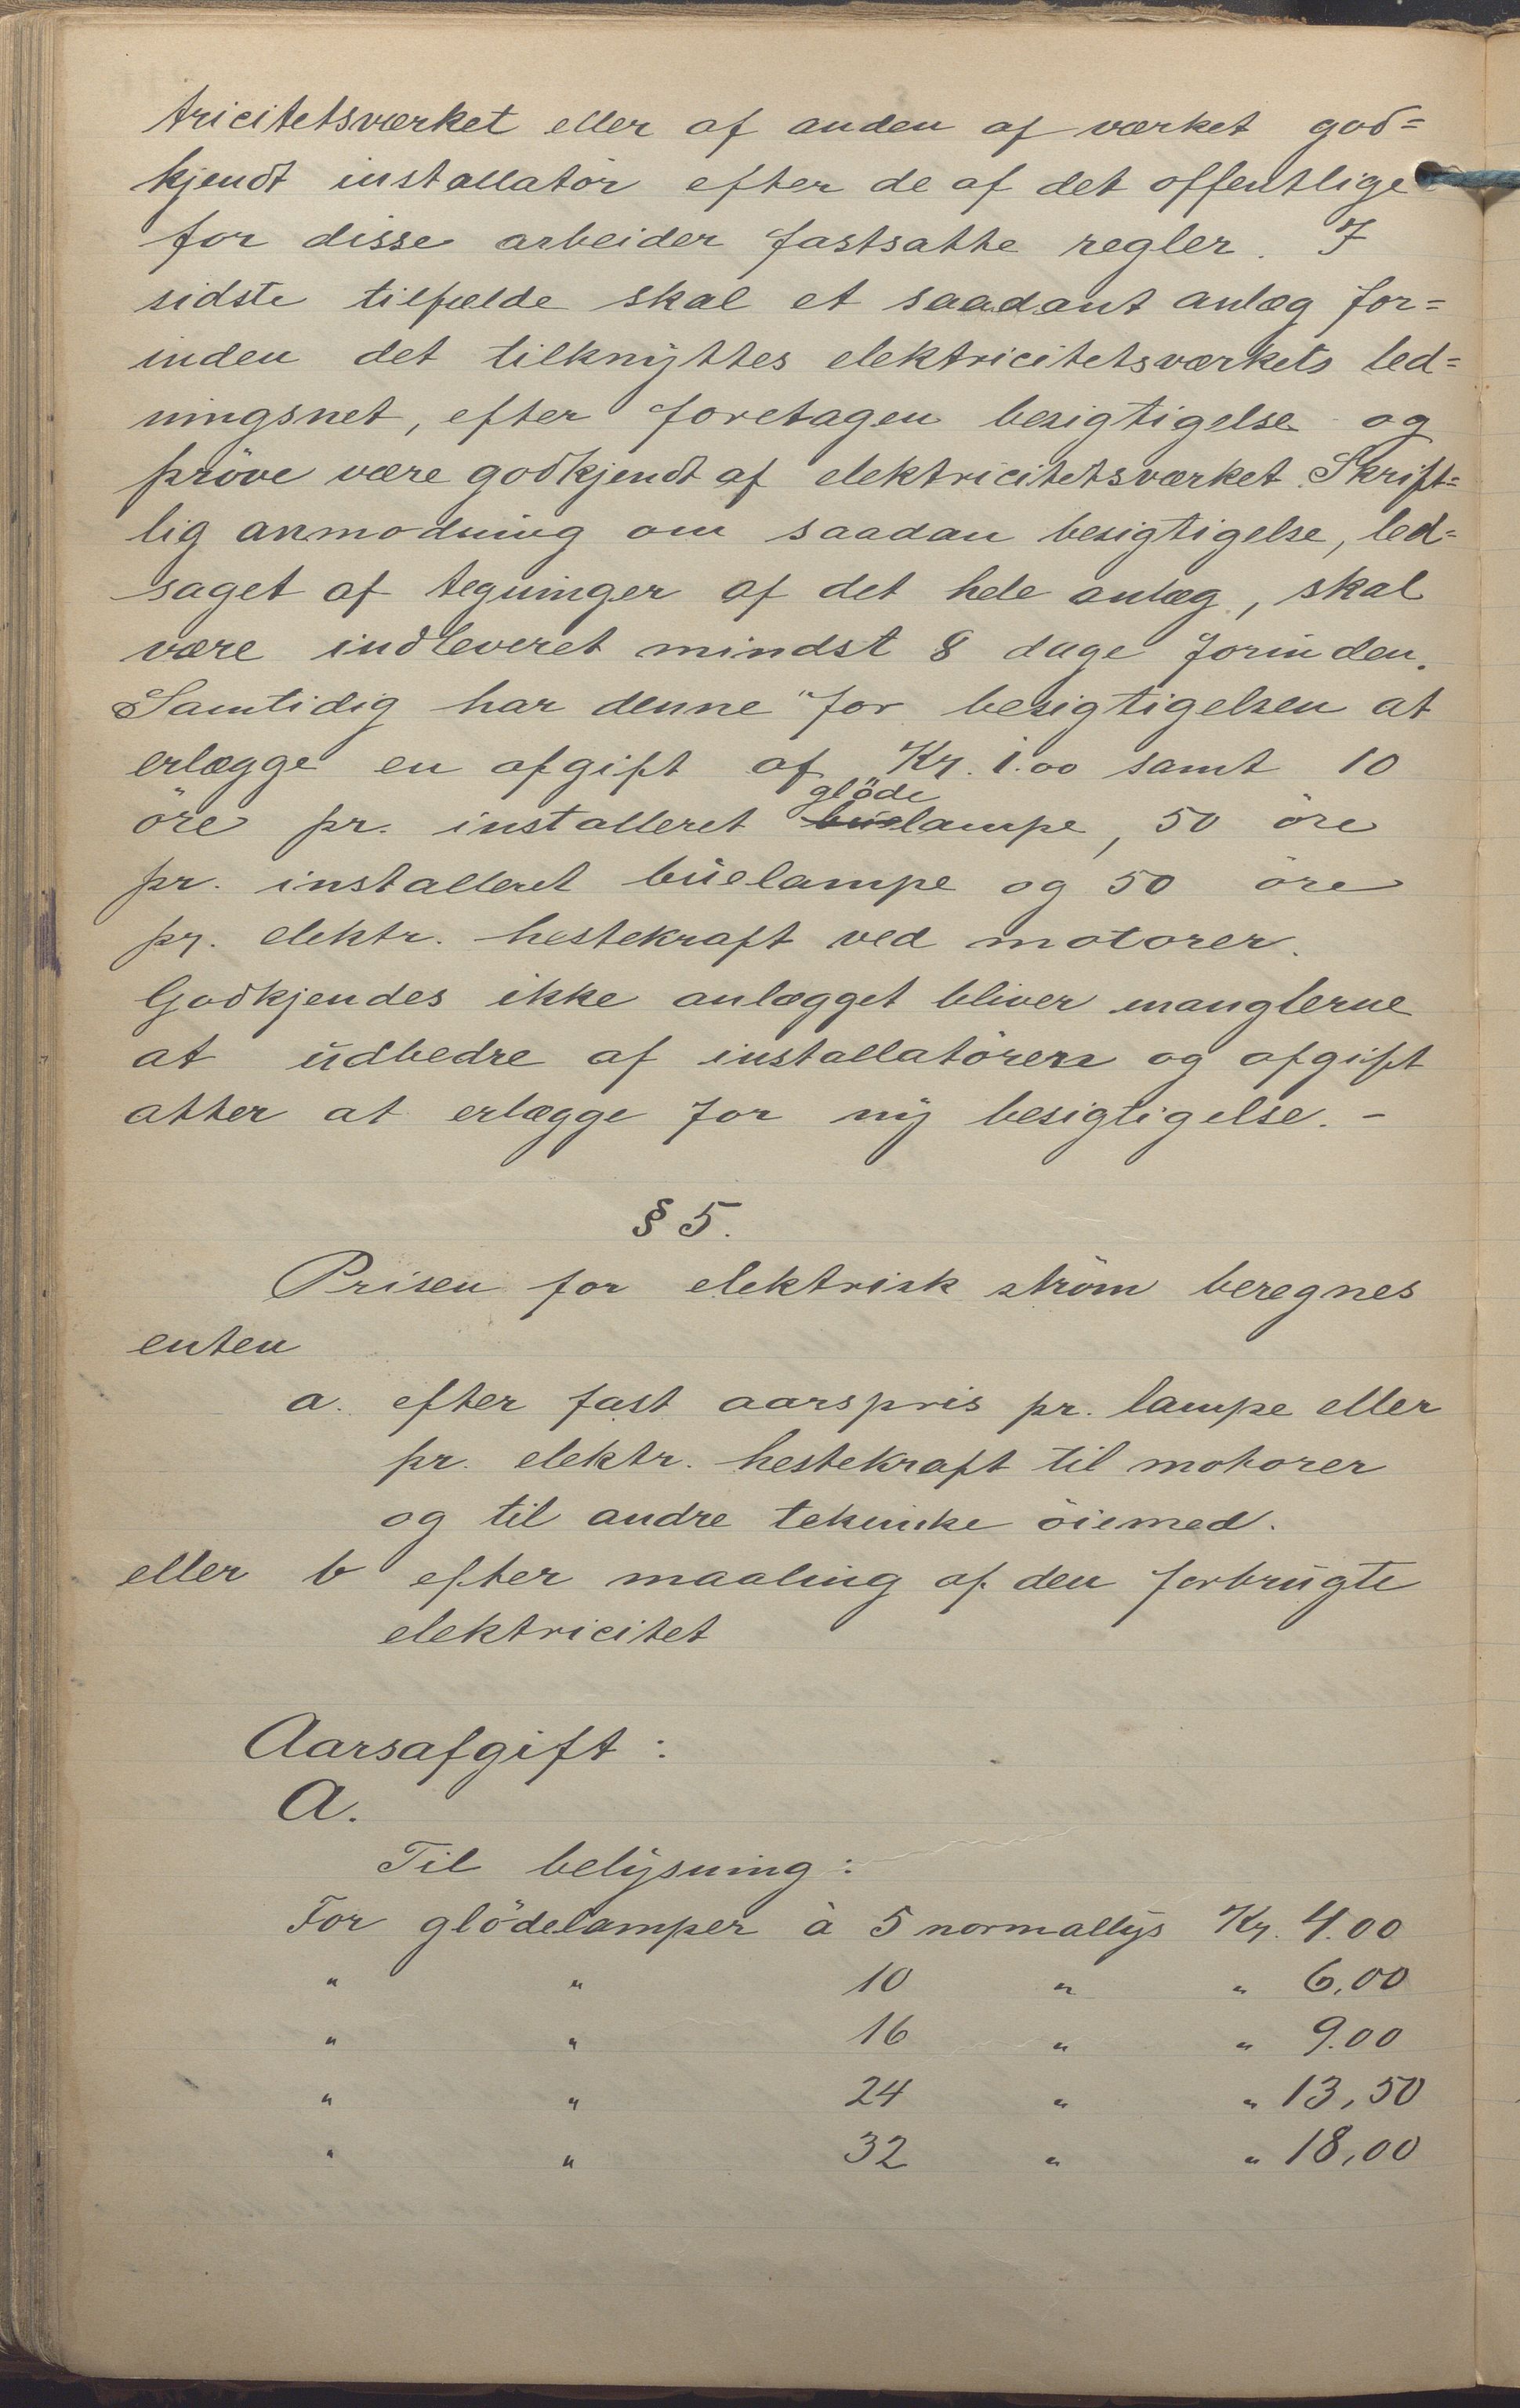 tricitetsværket eller af anden af værket god=
kjendt installatör efter de af det offentlige
for disse arbeider fastsatte regler. I
sidste tilfælde skal et saadant anlæg for=
inden det tilknyttes elektricitetsværkets led=
ningsnet, efter foretagen besigtigelse og
pröve være godkjendt af elektricitetsværket. Skrift=
lig anmodning om saadan besigtigelse, led=
saget af tegninger af det hele anlæg, skal
være indleveret mindst 8 dage forinden.
Samtidig har denne for besigtigelsen at
erlægge en afgift af Kr. 1.00 samt 10
glöde
öre pr. installeret buelampe, 50 öre
pr. installeret buelampe og 50 öre
pr. elektr. hestekraft ved motorer.
Godkjendes ikke anlægget bliver manglerne
at udbedre af installatören og afgift
atter at erlægge for ny besigtigelse. -
§ 5.
Prisen for elektrisk ström beregnes
enten
a. efter fast aarspris pr. lampe eller
pr. elektr. hestekraft til motorer
og til andre tekniske öiemed.
eller b efter maaling af den forbrugte
elektricitet
Aarsafgift:
A.
Til belysning:
For glödelamper à 5 normallys Kr. 4.00
" " 10 " " 6,00
" " 16 " " 9.00
" " 24 " " 13,50
" " 32 " " 18,00